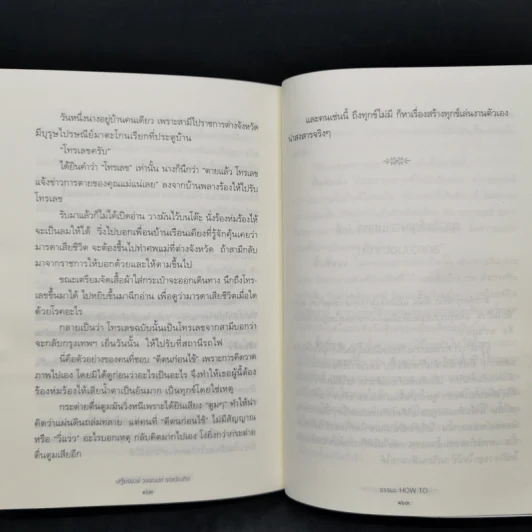 วันหนึ่งนางอยู่บ้านคนเดียว เพราะสามีไปราชการต่างจังหวัด
มีบุรุษไปรษณีย์มาตะโกนเรียกที่ประตูบ้าน
"โทรเลขครับ"
ได้ยินคำว่า "โทรเลข" เท่านั้น นางก็นึกว่า "ตายแล้ว โทรเลข
แจ้งข่าวการตายของคุณแม่แน่เลย" ลงจากบ้านพลางร้องไห้ไปรับ
โทรเลข
รับมาแล้วก็ไม่ได้เปิดอ่าน วางมันไว้บนโต๊ะ นั่งร้องห่มร้องไห้
จะเป็นลมให้ได้ วิ่งไปบอกเพื่อนบ้านเรือนเคียงที่รู้จักคุ้นเคยว่า
มารดาเสียชีวิต จะต้องขึ้นไปทำศพแม่ที่ต่างจังหวัด ถ้าสามีกลับ
มาจากราชการให้บอกด้วยและให้ตามขึ้นไป
ขณะเตรียมจัดเสื้อผ้าใส่กระเป๋าจะออกเดินทาง นึกถึงโทร-
เลขขึ้นมาได้ ไปหยิบขึ้นมาฉีกอ่าน เพื่อดูว่ามารดาเสียชีวิตเมื่อใด
ด้วยโรคอะไร
กลายเป็นว่า โทรเลขฉบับนั้นเป็นโทรเลขจากสามีบอกว่า
จะกลับกรุงเทพฯ เย็นวันนั้น ให้ไปรับที่สถานีรถไฟ
นี่คือตัวอย่างของคนที่ชอบ "ตีตนก่อนไข้" เพราะการคิดวาด
ภาพไปเอง โดยมิได้ดูก่อนว่าอะไรเป็นอะไร จึงทำให้เธอผู้นี้ต้อง
ร้องห่มร้องไห้เสียน้ำตาเป็นอันมาก เป็นทุกข์โดยใช่เหตุ
กระต่ายตื่นตูมมันวิ่งหนีเพราะได้ยินเสียง "ตูมๆ" ทำให้น่า
คิดว่าแผ่นดินถล่มทลาย แต่คนที่ "ตีตนก่อนไข้" ไม่มีสัญญาณ
หรือ "วี่แวว" อะไรบอกเหตุ กลับคิดมากไปเอง โง่ยิ่งกว่ากระต่าย
ตื่นตูมเสียอีก
๑๖๒
และคนเช่นนี้ ถึงทุกข์ไม่มี ก็หาเรื่องสร้างทุกข์เล่นงานตัวเอง
น่าสงสารจริงๆ
ธรรมะ HOW TO
๑๖๓